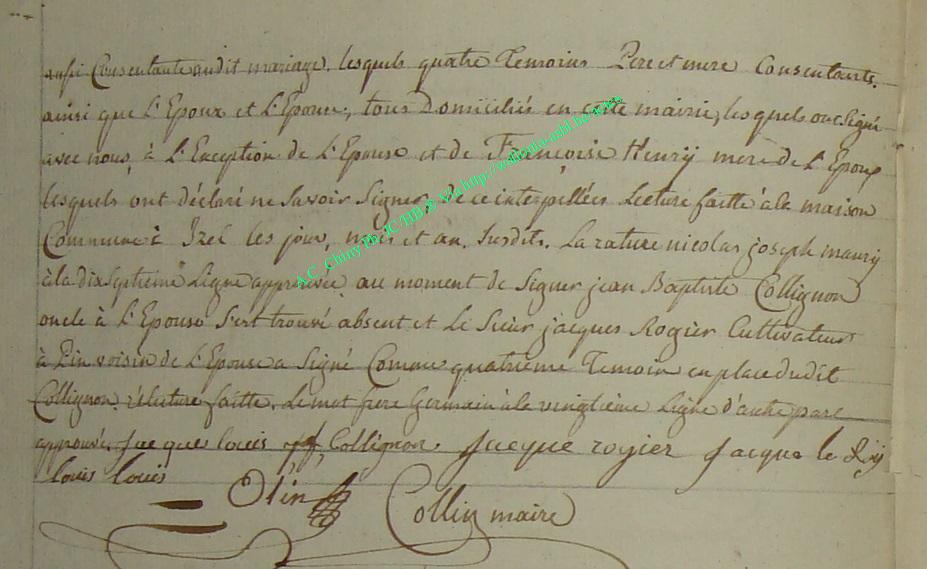 aussi Consentante audit mariage. lesquels quatre Temoins Pere et mere Consentants.
ainsi que L'Epoux et L'Epouse, tous Domiciliés en cette mairie, lesquels ont Signé
avec nous à L'Exception de L'Epouse et de Françoise Henrÿ mere de L'Epoux
lesquels ont déclaré ne Savoir Signer, de ce interpellées Lecture faitte à la maison
Commune à Izel les jour, mois et an, Susdits. La rature nicolas joseph maury
à la dixseptieme Ligne approuvée, au moment de Signer jean Baptiste Collignon
oncle à L'Epouse S'est trouvé absent et Le Sieur jacques Rogier Cultivateur
à Pin voisin de L'Epouse a Signé Comme quatrieme Temoin en place dudit
Collignon. relecture faitte. Le mot frere Germain à la vingtieme Ligne d'autre part
approuvé. Jacque louis Collignon Jacque rogier Jacque le Roÿ
louis louis
Collin maire
A.C. Chiny via http://